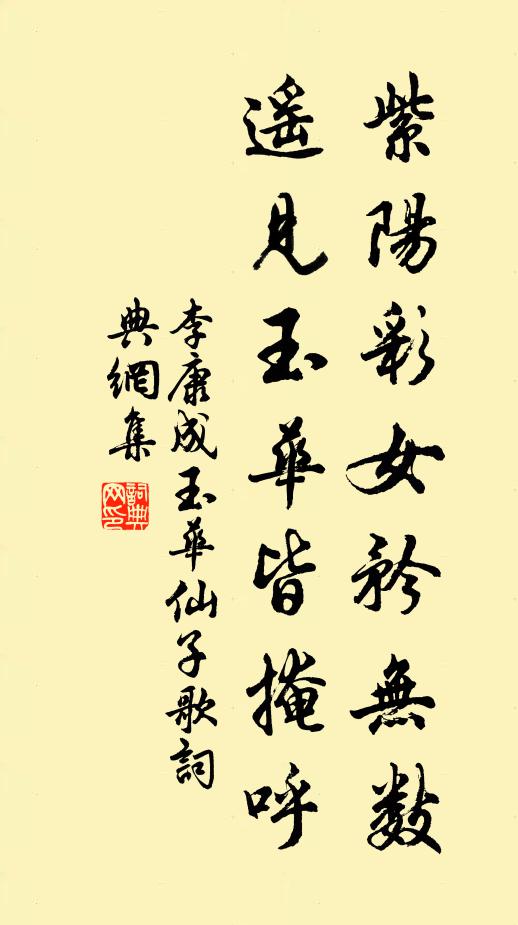 紫陽彩女矜無數
遥見玉華皆掩呼
李康成玉華仙子歌詞
典網集
詞典網印